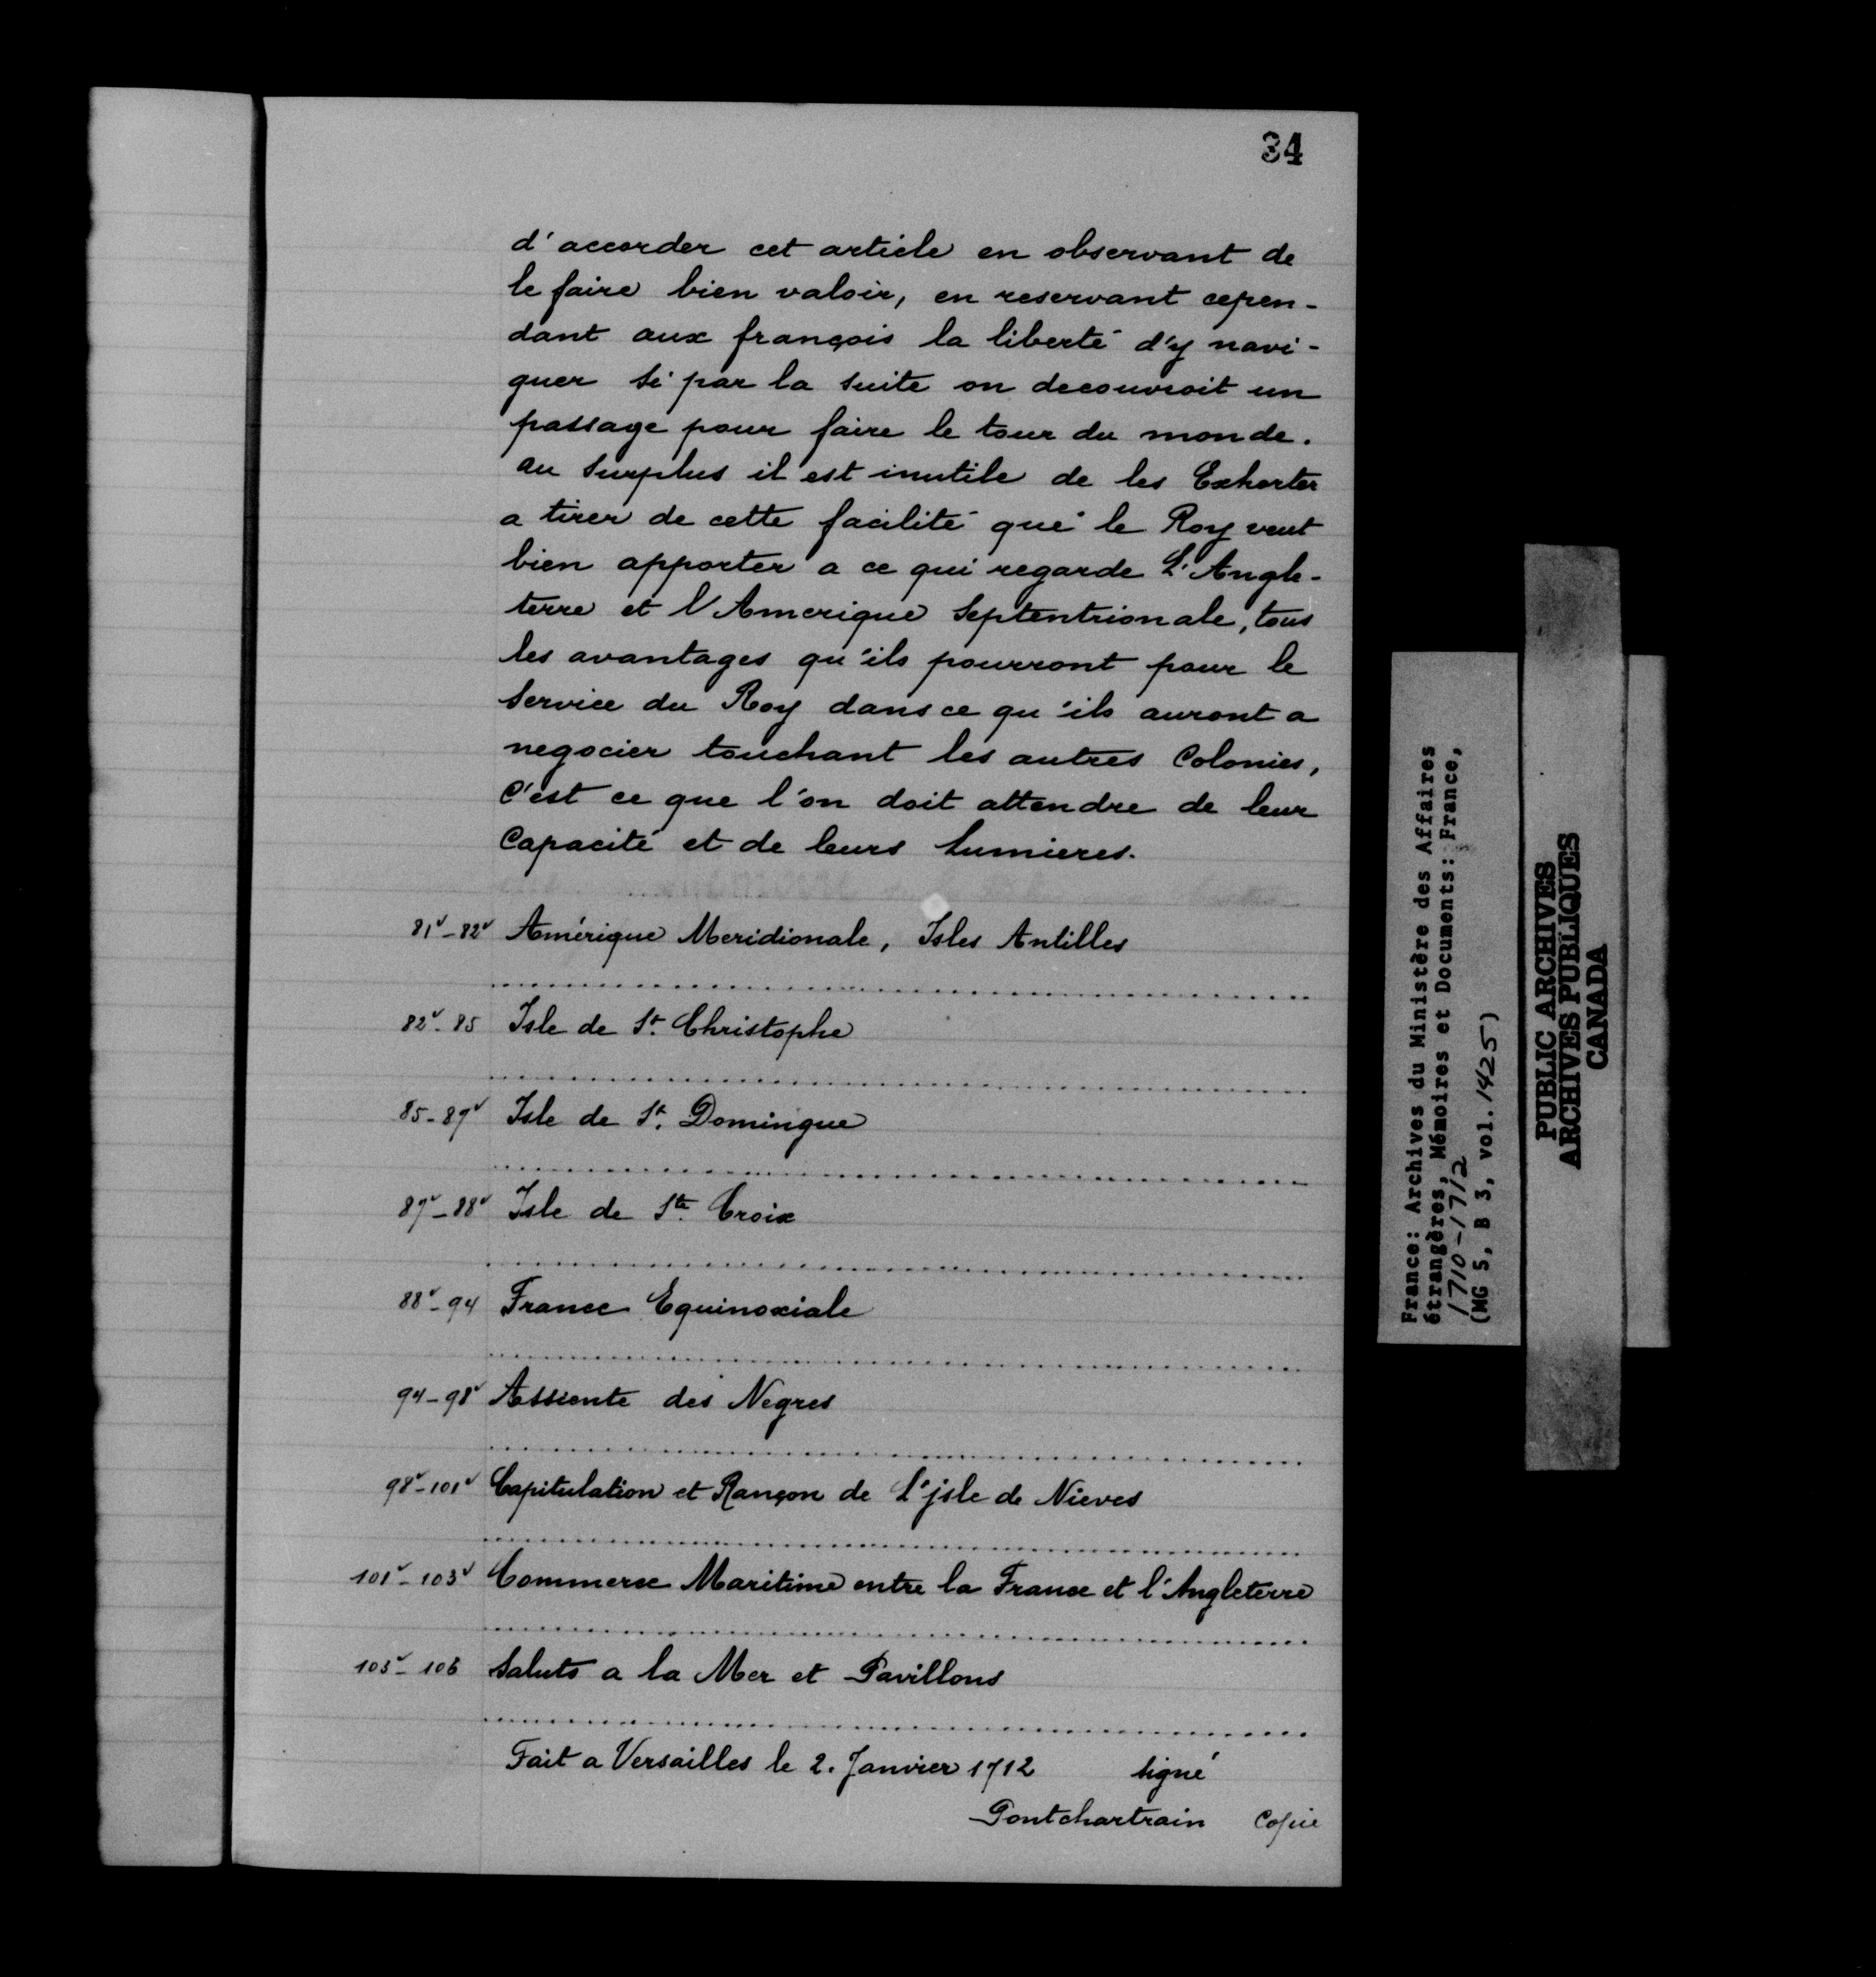 34
d'accorder cet article en observant de
le faire bien valoir, en reservant cepen-
dant aux françois la liberté d'y navi-
guer si par la suite on decouvroit un
passage pour faire le tour du monde.
au surplus il est inutile de les Exhorter
a tirer de cette facilité que le Roy veut
bien apporter a ce qui regarde L'Angle-
terre et l'Amerique Septentrionale, tous
les avantages qu'ils pourront pour le
service du Roy dans ce qu'ils auront a
negocier touchant les autres Colonies,
C'est ce que l'on doit attendre de leur
Capacité et de leurs lumieres.
81v-82v Amérique Meridionale, Isles Antilles
82v-85 Isle de St. Christophe
85-87v Isle de St. Domingue
87v-88v Isle de Ste. Croix
88v-94 France Equinoxiale
94-98v Assiente des Negres
98v-101v Capitulation et Rançon de l'jsle de Nieves
101v-103v Commerce Maritime entre la France et l'Angleterre
103v-106 Saluts a la Mer et Pavillons
Fait a Versailles le 2. Janvier 1712 signé
Pontchartrain Copie
France: Archives du Ministère des Affaires
étrangères, Mémoires et Documents: France,
1710-1712
(MG 5, B 3, vol. 1425)
PUBLIC ARCHIVES
ARCHIVES PUBLIQUES
CANADA